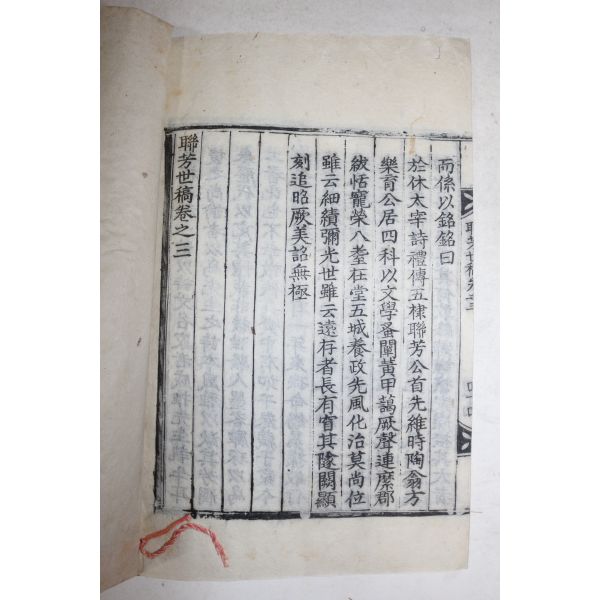 而係以銘銘曰
於休太宰詩禮傳五棣聯芳公首先維時陶翁方
樂育公居四科以文學蚤闡黃甲藹厥聲連縻郡
紱恬寵榮八耋在堂五城養政先風化治莫尚位
雖云細績彌光世雖云遠存者長有窅其隧闕顯
刻追昭厥美詔無極
聯芳世稿卷之三
聯芳世稿卷之三